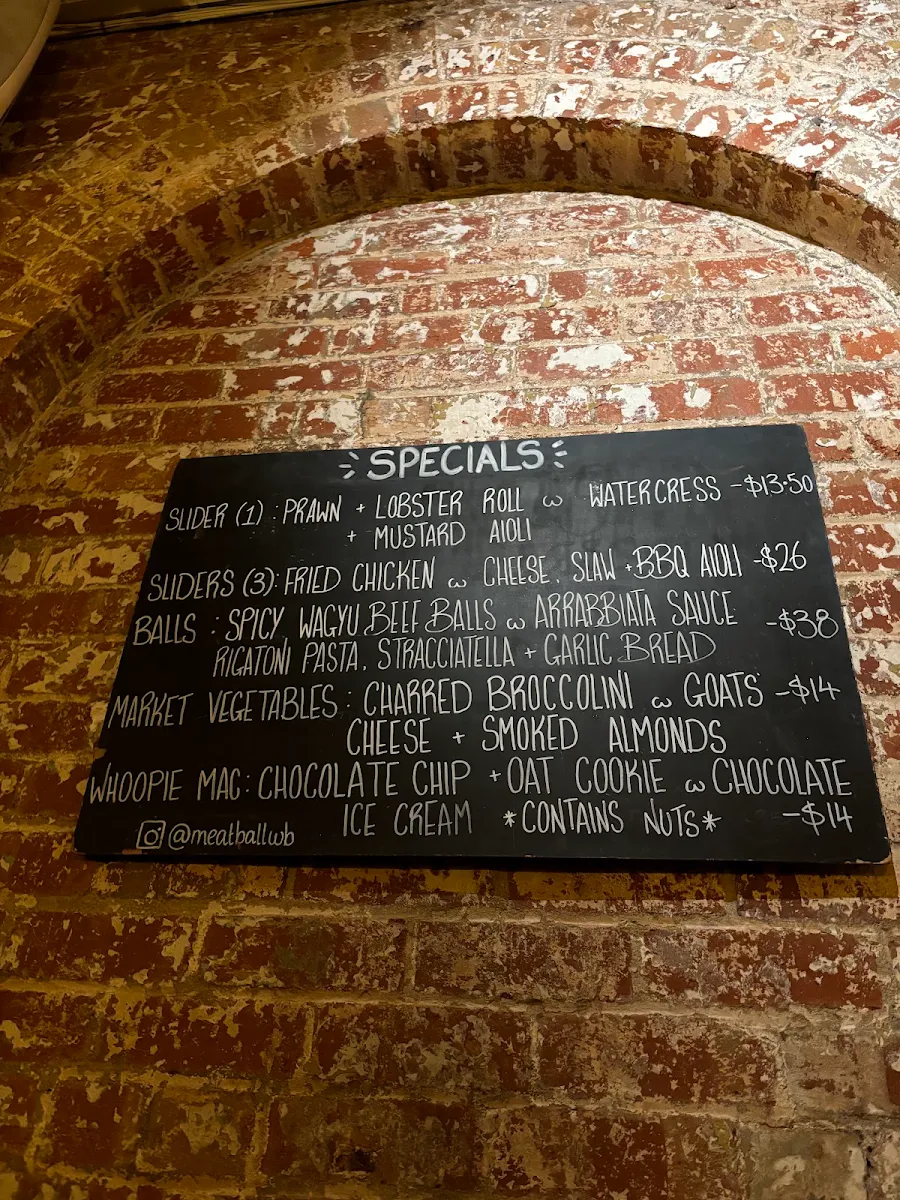 SPECIALS
SLIDER (1): PRAWN + LOBSTER ROLL w WATERCRESS -$13.50
+ MUSTARD AIOLI
SLIDERS (3): FRIED CHICKEN w CHEESE, SLAW + BBQ AIOLI -$26
BALLS : SPICY WAGYU BEEF BALLS w ARRABBIATA SAUCE -$38
RIGATONI PASTA, STRACCIATELLA + GARLIC BREAD
MARKET VEGETABLES : CHARRED BROCCOLINI w GOATS -$14
CHEESE + SMOKED ALMONDS
WHOOPIE MAC: CHOCOLATE CHIP + OAT COOKIE w CHOCOLATE
ICE CREAM *CONTAINS NUTS* -$14
@meatballwb